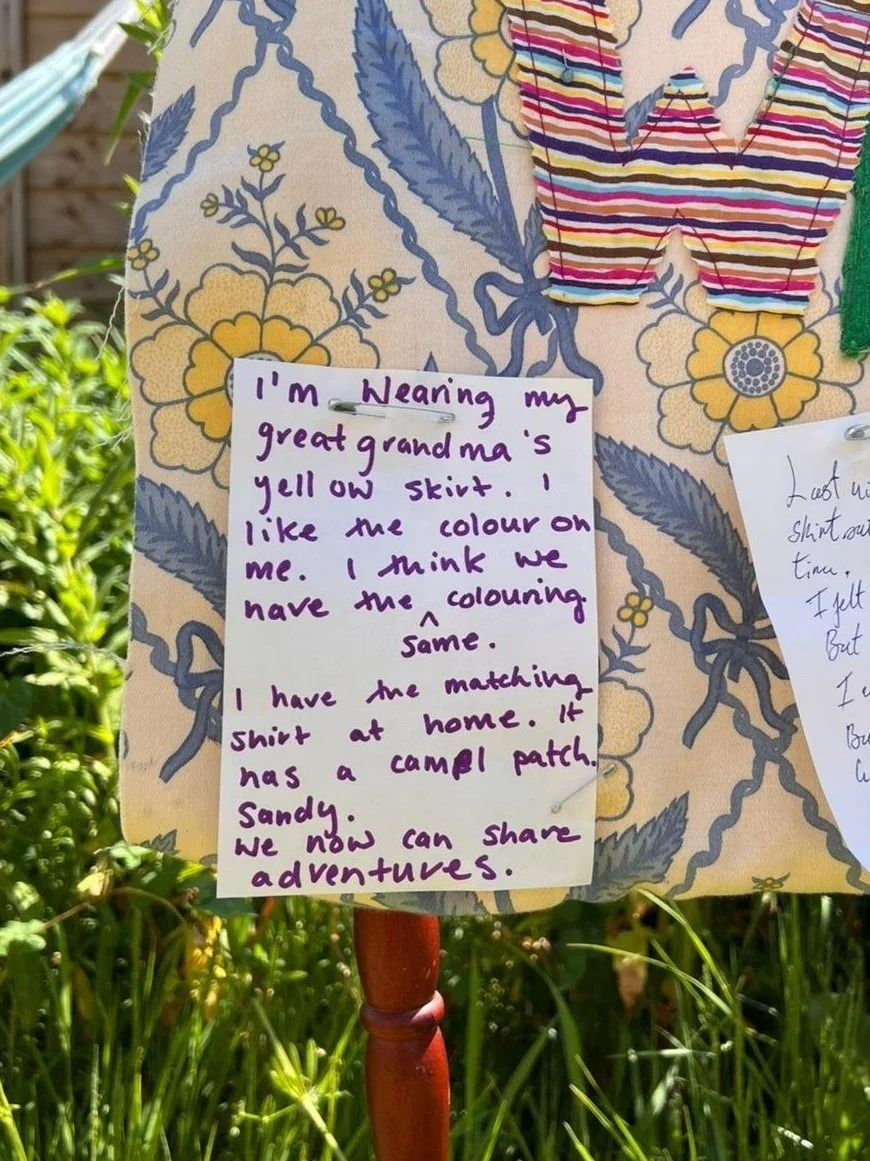 W
I'm Wearing my
great grandma's
yellow skirt. I
like the colour on
me. I think we
have the ^ colouring.
same.
I have the matching
shirt at home. It
has a camel patch.
Sandy.
We now can share
adventures.
Last
skirt
time.
I felt
But
I